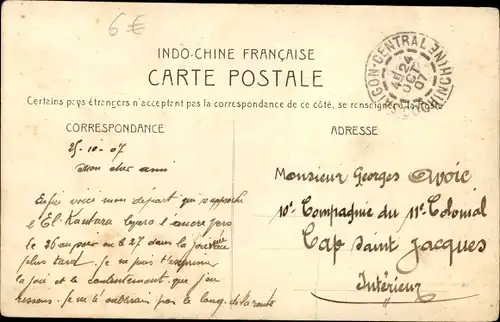 6 €
INDO-CHINE FRANÇAISE
CARTE POSTALE
SAIGON-CENTRAL COCHINCHINE
24
OCT
07
Certains pays étrangers n'acceptent pas la correspondance de ce côté, se renseigner à la Poste
CORRESPONDANCE
ADRESSE
25-10-07
Mon cher ami
Enfin voici mon départ qui s'approche
l'El-Kantara lèvera l'ancre vers
le 26 au soir ou le 27 dans la journée
plus tard. Je ne puis t'exprimer
la joie et le contentement que j'en
ressens. Je ne t'oublierai pas le long de la route
Monsieur Georges
10e Compagnie du 11e Colonial
Cap Saint Jacques
Intérieur